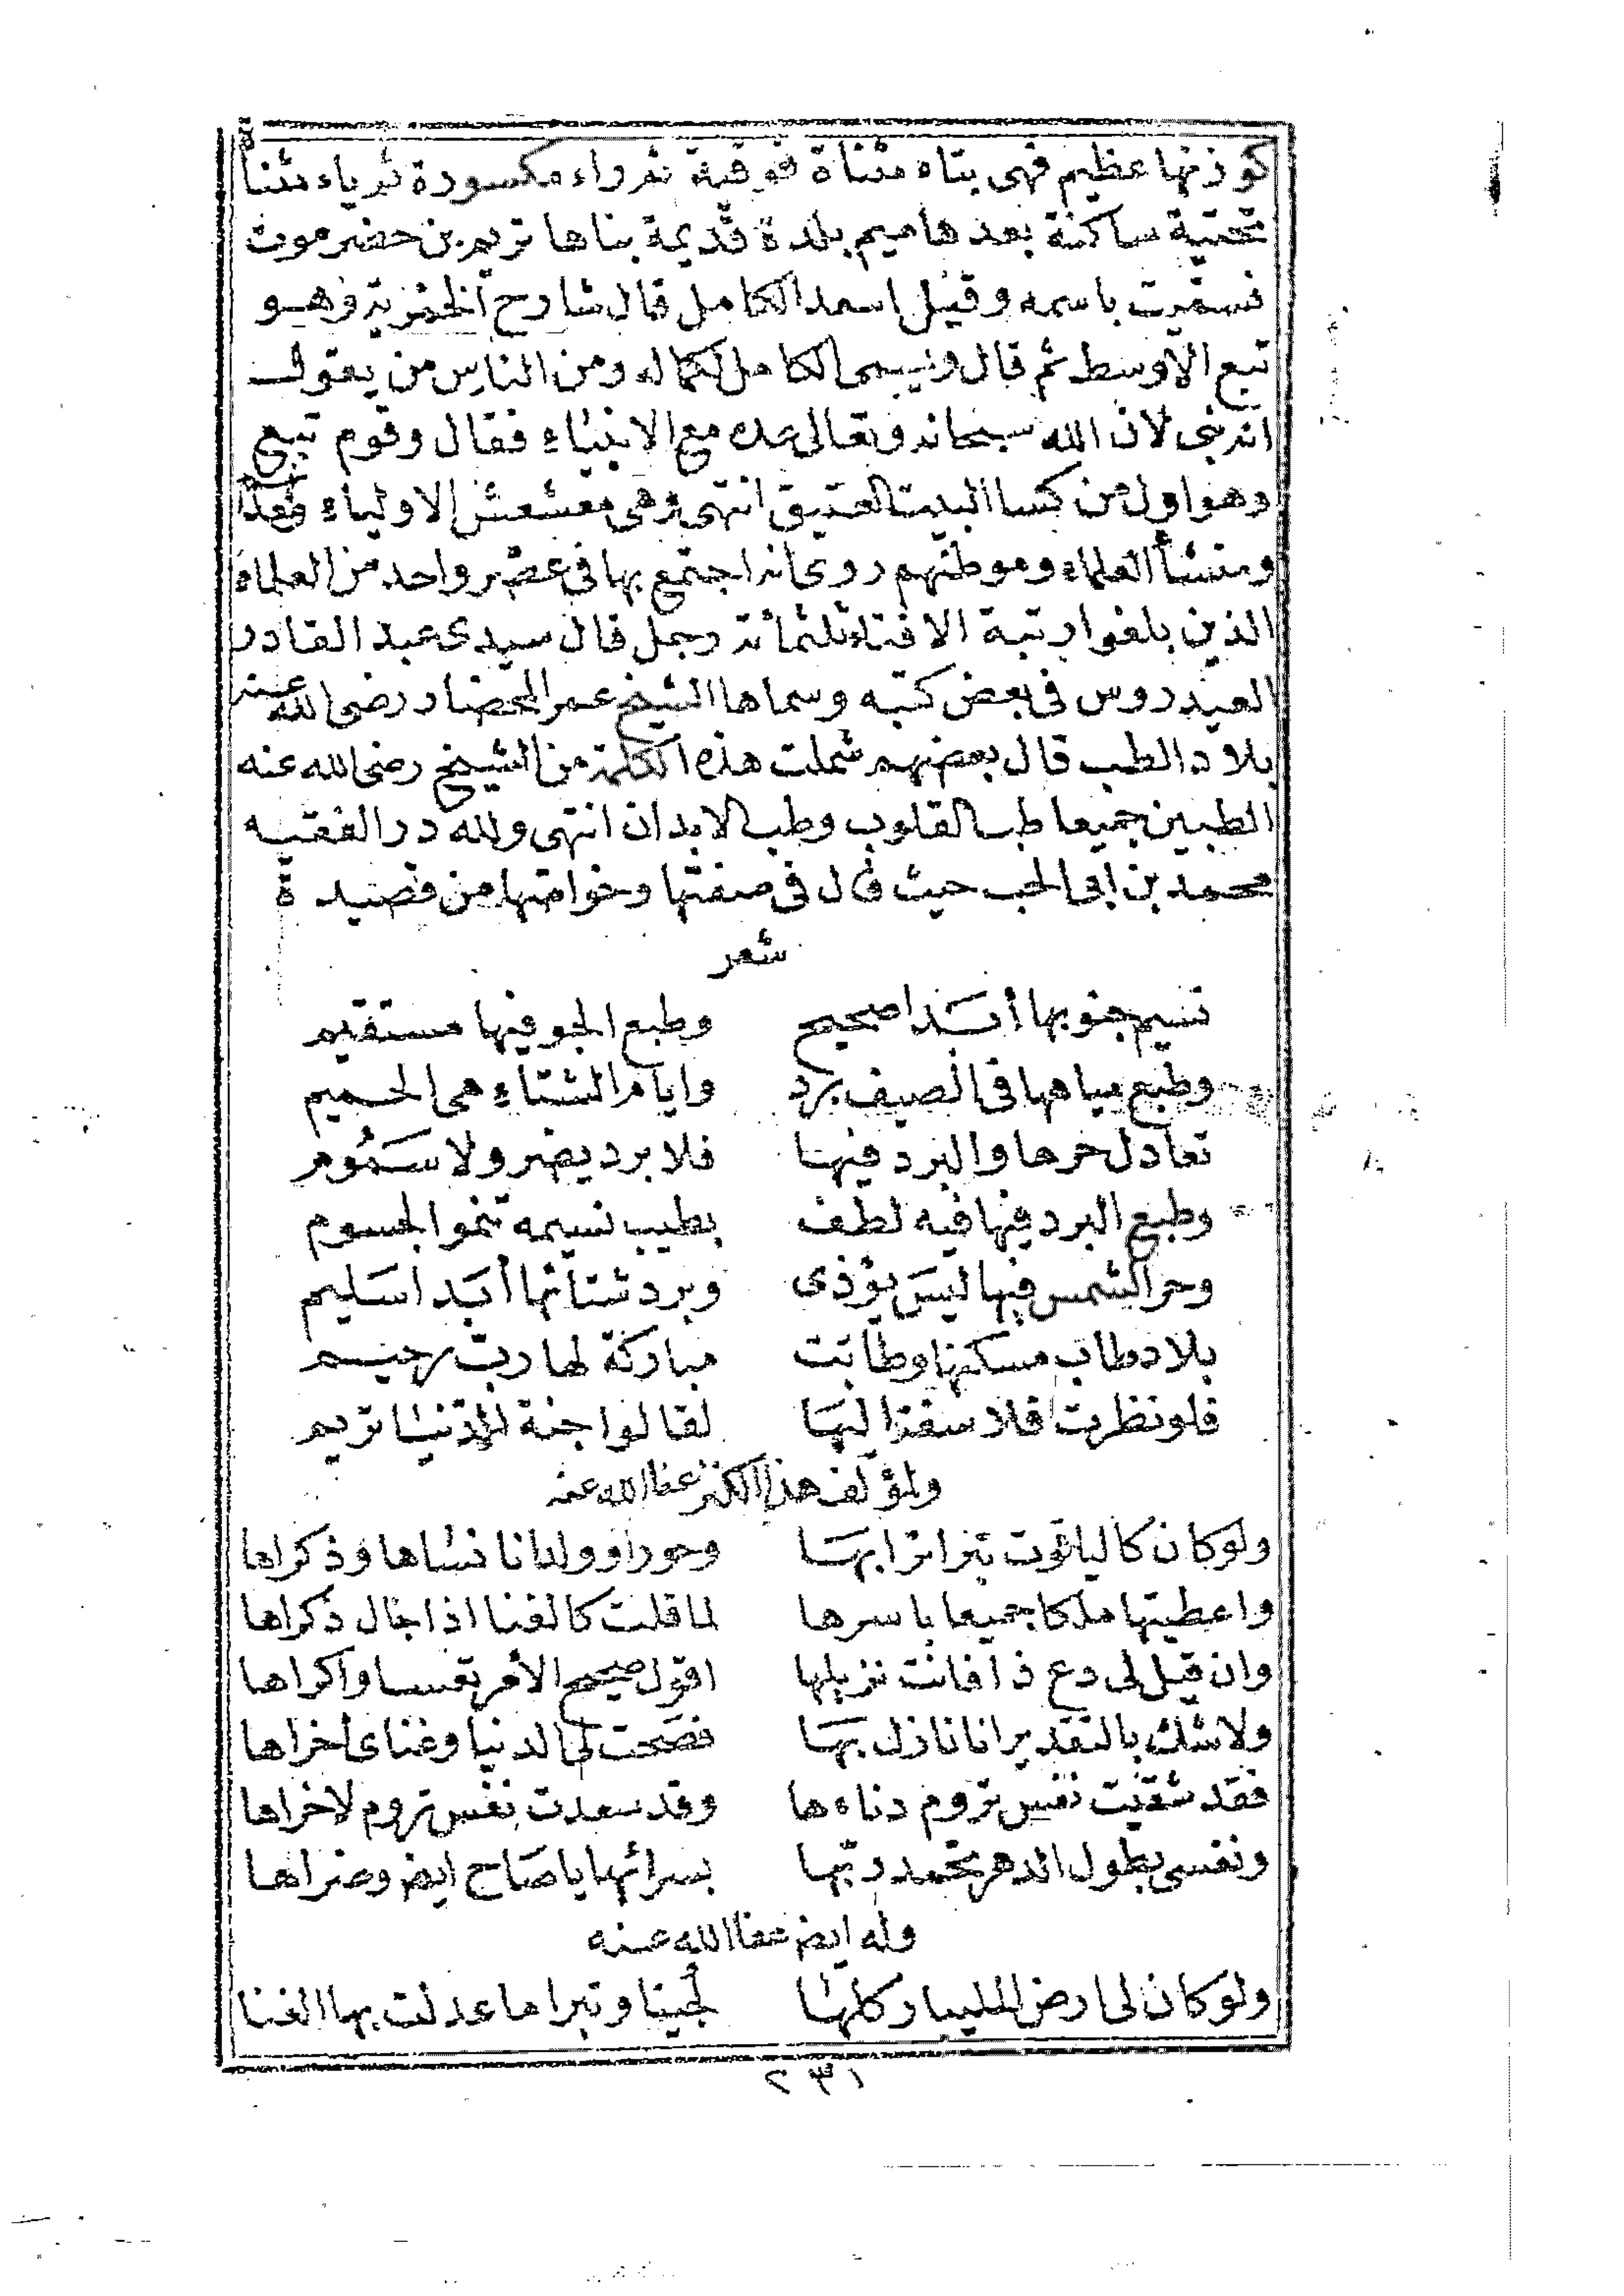 كوزنها عظيم فهى بتاء مثناة فوقية ثم راء مكسورة ثم ياء مثناة
تحتية ساكنة بعدها ميم بلدة قديمة بناها تريم بن حضرموت
فسميت باسمه وقيل اسعد الكامل قال شارح الخمزية وهو
تبع الاوسط ثم قال ويسمى الكامل لكماله ومن الناس من يقول
انه نبى لان الله سبحانه وتعالى عده مع الانبياء فقال وقوم تبع
وهو اول من كسا البيت العتيق انتهى وهى معشعش الاولياء
ومنشأ العلماء وموطنهم روى انه اجتمع بها فى عصر واحد من العلماء
الذين بلغوا رتبة الافتاء ثلثمائة رجل قال سيدى عبد القادر
العيدروس فى بعض كتبه وسماها الشيخ عمر المحضار رضى الله عنه
بلاد الطب قال بعضهم شملت هذه الكلمة من الشيخ رضى الله عنه
الطبين جميعا طب القلوب وطب الابدان انتهى ولله در الفقيه
محمد بن ابى الحب حيث قال فى صفتها وخواصها من قصيدة
شعر
نسيم جنوبها أبدا صحيح وطبع الجو فيها مستقيم
وطبع مياهها فى الصيف برد وايام الشتاء هى الحميم
تعادل حرها والبرد فيها فلا برد يضر ولا سموم
وطبع البرد فيها فيه لطف بطيب نسيمه تنموا الجسوم
وحر الشمس فيها ليس يؤذى وبرد شتائها أبدا سليم
بلاد طاب مسكنها وطابت مباركة لها رب رحيم
فلو نظرت فلاسفة اليها لقالوا جنة الدنيا تريم
ولمؤلف هذا الكنز عفا الله عنه
ولو كان كالياقوت تبرا ترابها وحورا وولدانا نساها وذكراها
واعطيتها ملكا جميعا باسرها لما قلت كالغنا اذا جال ذكراها
وان قيل لى دع ذا فانت نزيلها اقول صحيح الأمر نفسا واكراها
ولا شك بالتقدير انا نازل بها فصحت لى الدنيا وغناى أخراها
فقد شقيت نفس تروم دناءها وقد سعدت نفس تروم لاخراها
ونفسى بطول الدهر تحمد ربها بسرائها يا صاح ايضا وضراها
وله ايضا عفا الله عنه
ولو كان لى ارض المليبار كلها لجينا وتبرا ما عدلت بها الغنا
٢٣١